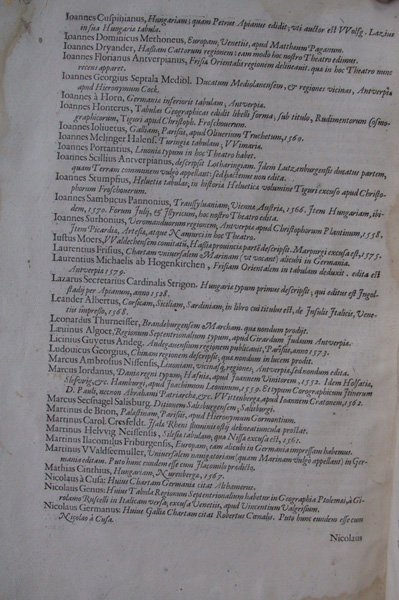 Ioannes Cuspinianus, Hungariam; quam Petrus Apianus edidit; vti auctor est VVolfg. Lazius
in sua Hungariæ tabula.
Ioannes Dominicus Methoneus, Europam, Venetiæ, apud Matthæum Paganum.
Ioannes Dryander, Hassiam Cattorum regionem: eam nos hoc nostro Theatro edimus.
Ioannes Florianus Antverpianus, Frisia Orientalis regionem delineauit. qua in hoc Theatro nunc
recens apparet.
Ioannes Georgius Septala Mediol. Ducatum Mediolanensem, & regiones vicinas, Antverpiæ
apud Hieronymum Cock.
Ioannes à Horn, Germaniæ inferioris tabulam, Antverpiæ.
Ioannes Honterus, Tabulas Geographicas edidit libelli forma; sub titulo, Rudimentorum Cosmo-
graphicorum, Tiguri apud Christoph. Froschouerum.
Ioannes Ioliuetus, Galliam, Parisijs, apud Oliuerium Truchetum, 1560.
Ioannes Melinger Halens. Turingiæ tabulam; VVimariæ.
Ioannes Portantius, Liuoniæ typum in hoc Theatro habet.
Ioannes Scillius Antverpianus, descripsit Lotharingiam. Idem Lutzenburgensis ducatus partem,
quam Terram communem vulgò appellant: sed hactenus non edita.
Ioannes Stumpfius, Heluetiæ tabulas, in historiæ Helueticæ volumine Tiguri excuso apud Christo-
phorum Froschouerum.
Ioannes Sambucus Pannonius, Transyluaniam, Viennæ Austriæ, 1566. Item Hungariam, ibi-
dem, 1570. Forum Iulij, & Illyricum, hoc nostro Theatro edita.
Ioannes Surhonius, Veromanduorum regionem, Antverpiæ apud Christophorum Plantinum, 1558.
Item Picardiæ, Artesiæ, atque Namurci in hoc Theatro.
Iustus Moers, VValdecksensem comitatũ, Hassiæ prouinciæ partẽ descripsit. Marpurgi excusa est, 1575.
Laurentius Frisius, Chartam vniuersalem Marinam (vt vocant) alicubi in Germania.
Laurentius Michaelis ab Hogenkirchen, Frisiam Orientalem in tabulam deduxit. edita est
Antverpiæ 1579.
Lazarus Secretarius Cardinalis Strigon. Hungariæ typum primus descripsit; qui editus est Ingol-
stadij per Apianum, anno, 1528.
Leander Albertus, Corsicam, Siciliam, Sardiniam, in libro cui titulus est, de Insulis Italicis, Vene-
tiæ impresso, 1568.
Leonardus Thurneisser, Brandeburgensem Marcham. qua nondum prodijt.
Læuinus Algoet, Regionum Septentrionalium typum, apud Girardum Iudæum Antverpiæ.
Licinius Guyetus Andeg. Andegauensium regionem publicauit, Parisijs, anno 1573.
Ludouicus Georgius, Chinam regionem descripsit; quæ nondum in lucem prodit.
Marcus Ambrosius Nissensis, Liuoniam, vicinasq; regiones, Antverpiæ, sed nondum edita.
Marcus Iordanus, Daniæ regni typum, Hafniæ, apud Ioannem Vinitorem, 1552. Idem Holsatiæ,
Slesvvig, &c. Hamburgi, apud Ioachimum Leonum, 1559. Et typum Corographicum Itinerum
D. Pauli, necnon Abrahami Patriarchæ, &c. VVitteberga, apud Ioannem Cratonem, 1562.
Marcus Secsnagel Salisburg. Ditionem Salisburgensem, Salisburgi.
Martinus de Brion, Palæstinam, Parisijs, apud Hieronymum Gormontium.
Martinus Carol. Cresfeldt. Isala Rheni fluminis ostij delineatiuncula prostat.
Martinus Helvvig Neissensis, Silesiæ tabulam, quæ Nissæ excusa est, 1561.
Martinus Ilacomilus Friburgensis, Europam, eam alicubi in Germania impressam habemus.
Martinus VValdseemuller, Vniuersalem nauigatoriam (quam Marinam vulgò appellant) in Ger-
mania editam. Puto hunc eundem esse cum Ilacomilo prædicto.
Mathias Cinthius, Hungariam, Nurenberga, 1567.
Nicolaus à Cusa: Huius Chartam Germaniæ citat Althamerus.
Nicolaus Genus: Huius Tabula Regionum Septentrionalium habetur in Geographia Ptolemæi, à Gi-
rolamo Ruscelli in Italicam versa; excusa Venetiis, apud Vincentium Valgrisium.
Nicolaus Germanus: Huius Galliæ Chartam citat Robertus Cænalis. Puto hunc eundem esse cum
Nicolao à Cusa.
Nicolaus